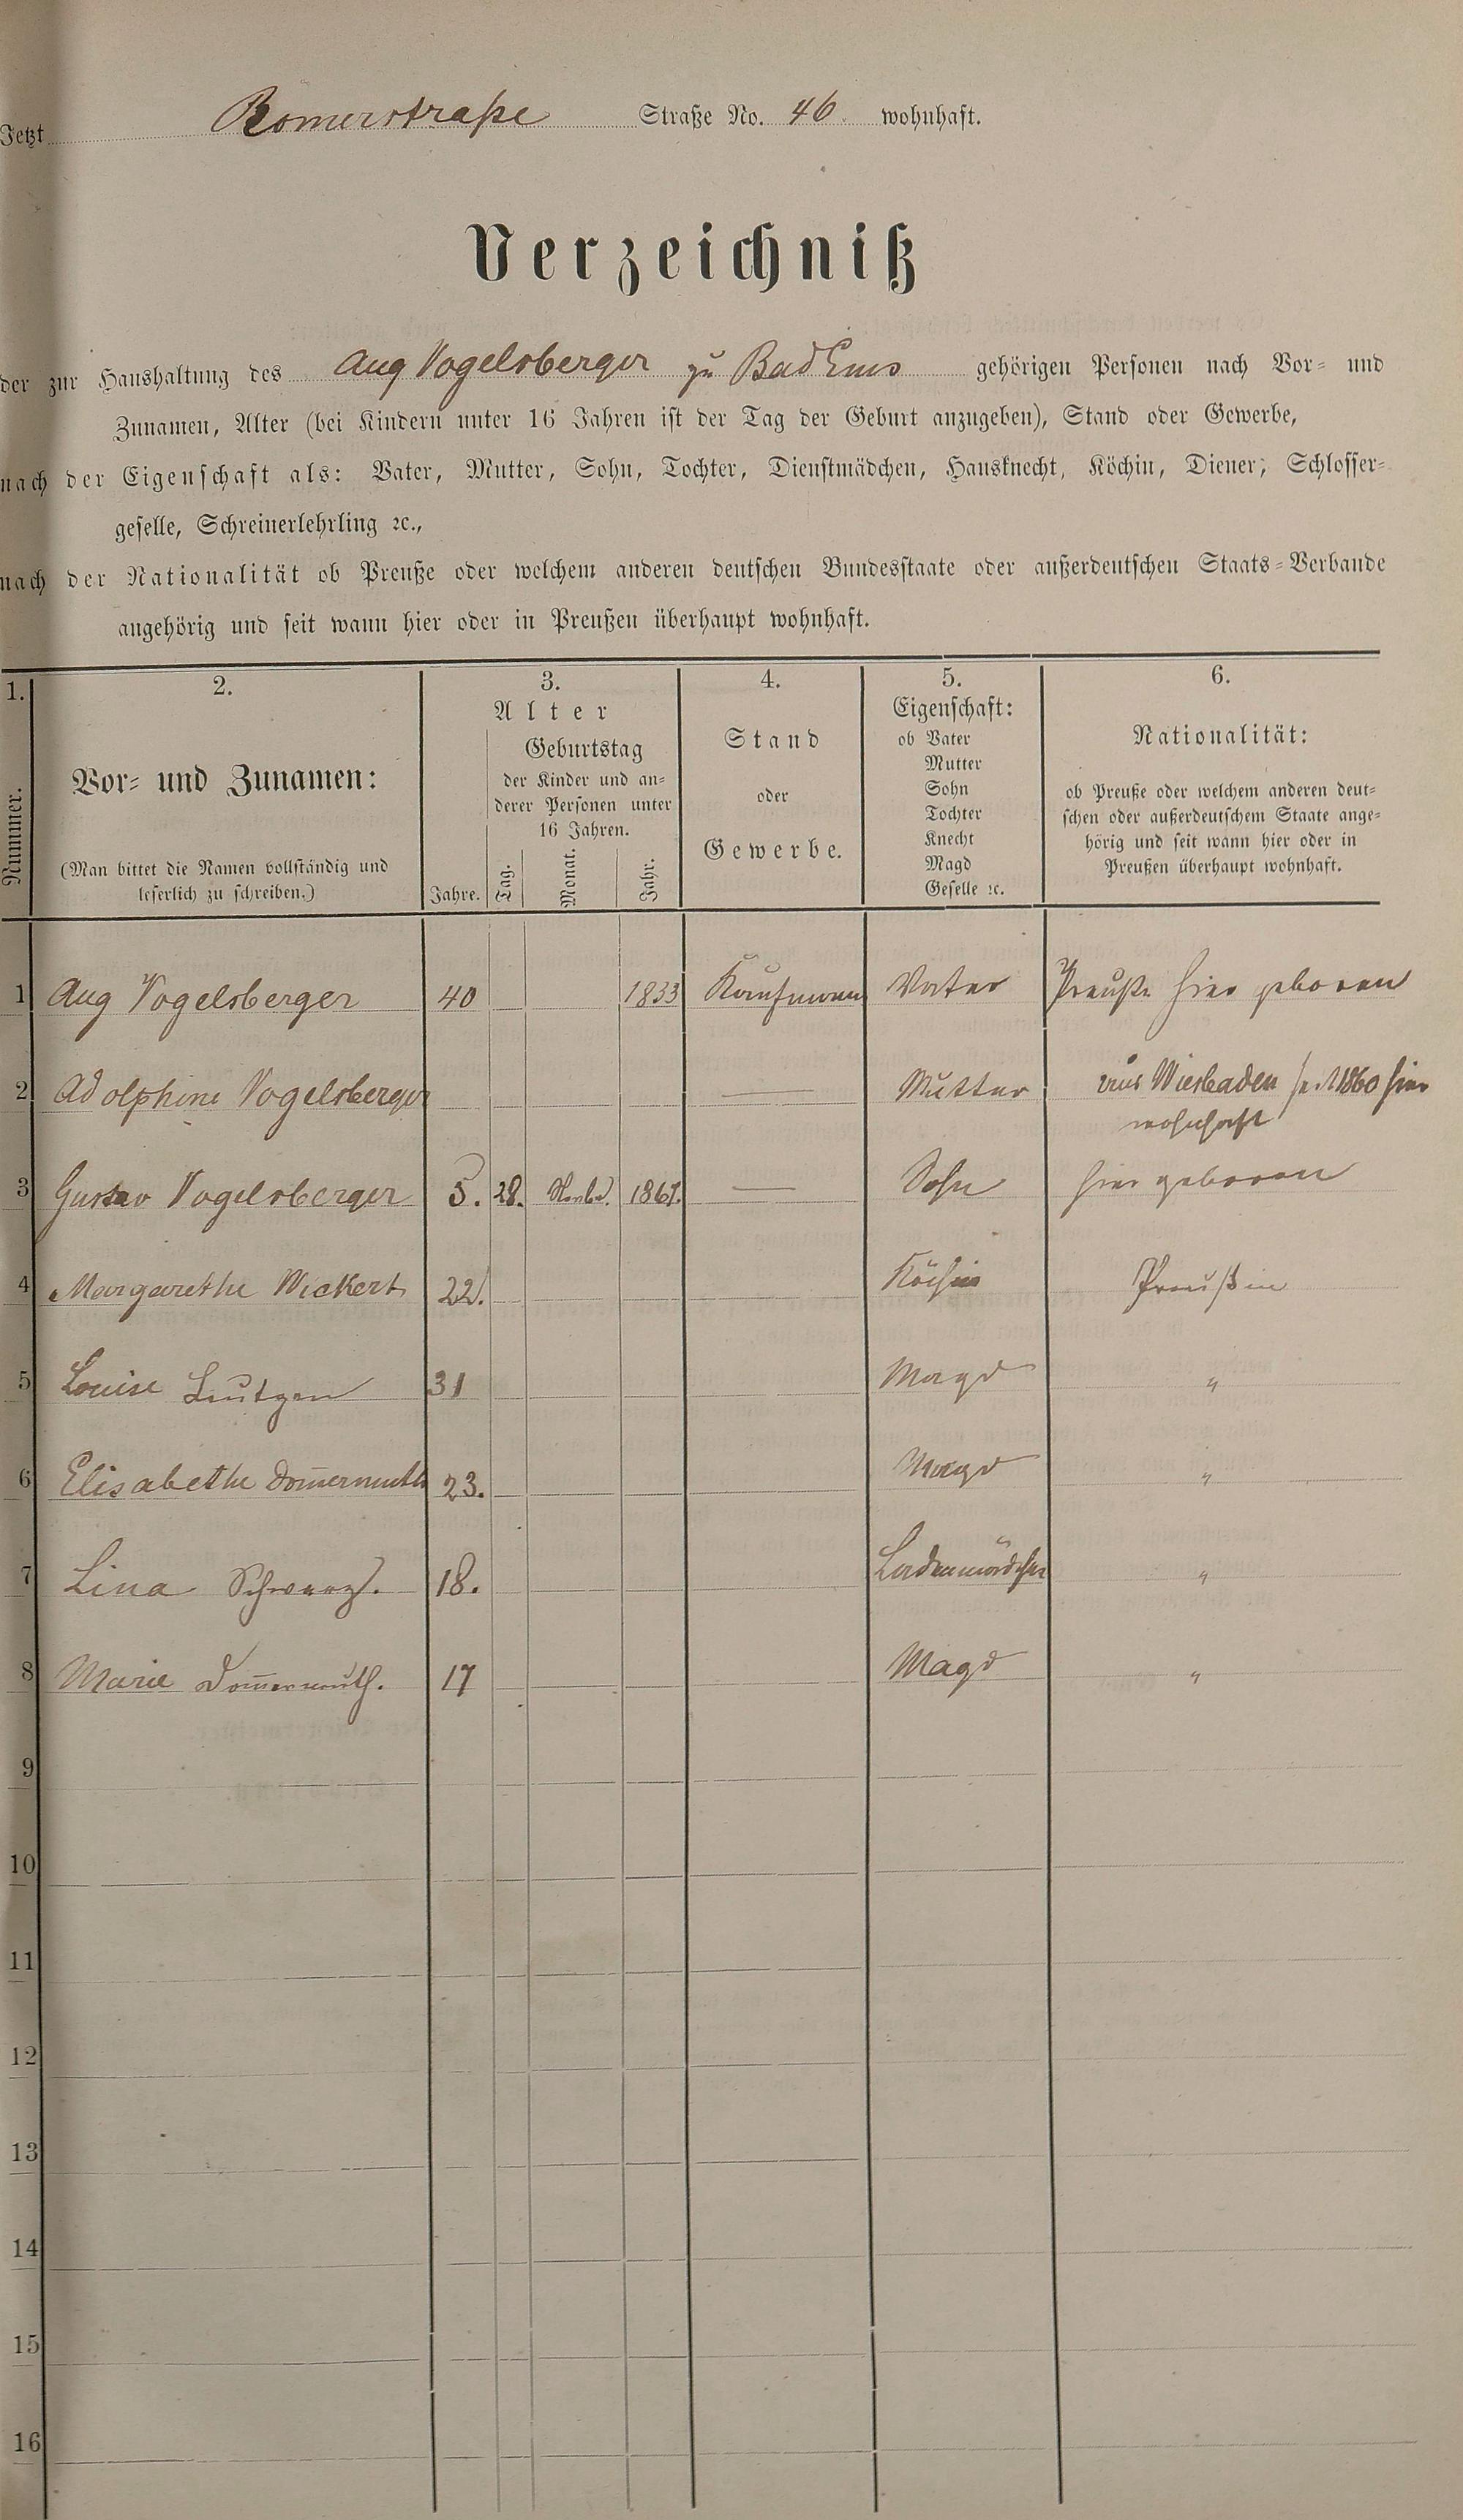 Jetzt Römerstraße Straße No. 46. wohnhaft.
Verzeichniß
der zur Haushaltung des Aug Vogelsberger zu Bad Ems gehörigen Personen nach Vor- und
Zunamen, Alter (bei Kindern unter 16 Jahren ist der Tag der Geburt anzugeben), Stand oder Gewerbe,
nach der Eigenschaft als: Vater, Mutter, Sohn, Tochter, Dienstmädchen, Hausknecht, Köchin, Diener, Schlosser-
geselle, Schreinerlehrling ꝛc.,
nach der Nationalität ob Preuße oder welchem anderen deutschen Bundesstaate oder außerdeutschen Staats-Verbande
angehörig und seit wann hier oder in Preußen überhaupt wohnhaft.
1.
Nummer.
2.
Vor- und Zunamen:
(Man bittet die Namen vollständig und
leserlich zu schreiben.)
3.
Alter
Jahre.
Geburtstag
der Kinder und an-
derer Personen unter
16 Jahren.
Tag.
Monat.
Jahr.
4.
Stand
oder
Gewerbe.
5.
Eigenschaft:
ob Vater
Mutter
Sohn
Tochter
Knecht
Magd
Geselle ꝛc.
6.
Nationalität:
ob Preuße oder welchem anderen deut-
schen oder außerdeutschem Staate ange-
hörig und seit wann hier oder in
Preußen überhaupt wohnhaft.
1 Aug Vogelsberger 40 1833 Kaufmann Vater Preuße hier geboren
2 Adolphine Vogelsberger — Mutter aus Wiesbaden seit 1860 hier
wohnhaft
3 Gustav Vogelsberger 5. 28. Novbr. 1867. — Sohn hier geboren
4 Margarethe Wickert 22. Köchin Preußin
5 Louise Leutgen 31 Magd "
6 Elisabethe Dom̅ermuth 23. Magd "
7 Lina Schwarz. 18. Ladenmädchen "
8 Marie Dom̅ermuth. 17 Magd "
9
10
11
12
13
14
15
16